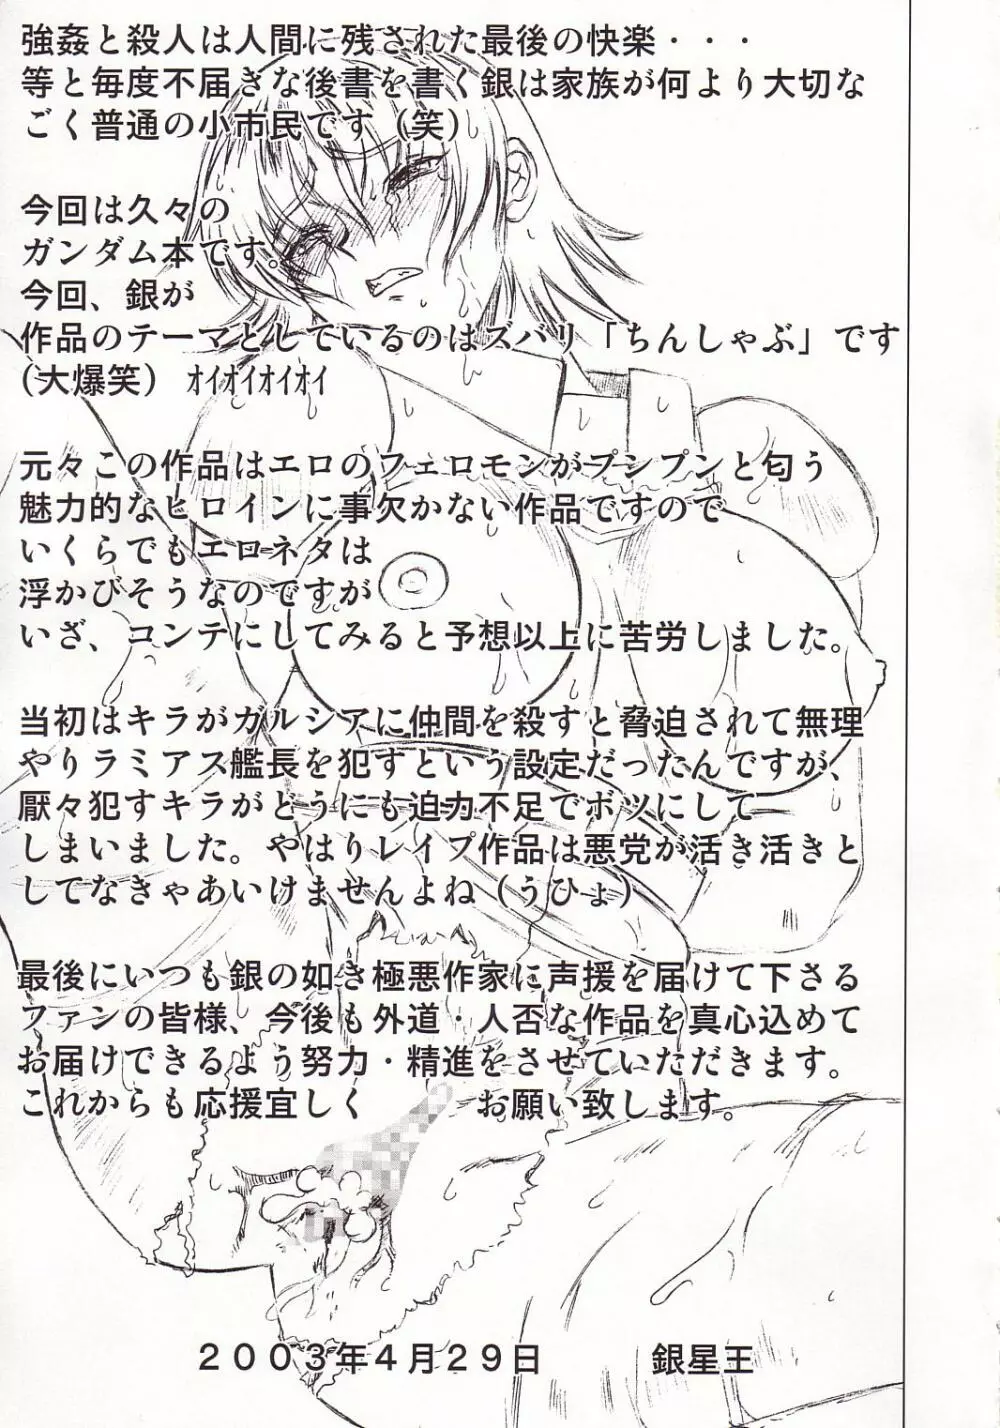 強姦と殺人は人間に残された最後の快楽・・・
等と毎度不届きな後書を書く銀は家族が何より大切な
ごく普通の小市民です（笑）
今回は久々の
ガンダム本です。
今回、銀が
作品のテーマとしているのはズバリ「ちんしゃぶ」です
（大爆笑）ｵｲｵｲｵｲｵｲ
元々この作品はエロのフェロモンがプンプンと匂う
魅力的なヒロインに事欠かない作品ですので
いくらでもエロネタは
浮かびそうなのですが
いざ、コンテにしてみると予想以上に苦労しました。
当初はキラがガルシアに仲間を殺すと脅迫されて無理
やりラミアス艦長を犯すという設定だったんですが、
厭々犯すキラがどうにも迫力不足でボツにして
しまいました。やはりレイプ作品は悪党が活き活きと
してなきゃあいけませんよね（うひょ）
最後にいつも銀の如き極悪作家に声援を届けて下さる
ファンの皆様、今後も外道・人否な作品を真心込めて
お届けできるよう努力・精進をさせていただきます。
これからも応援宜しく　　　お願い致します。
２００３年４月２９日　　　銀星王